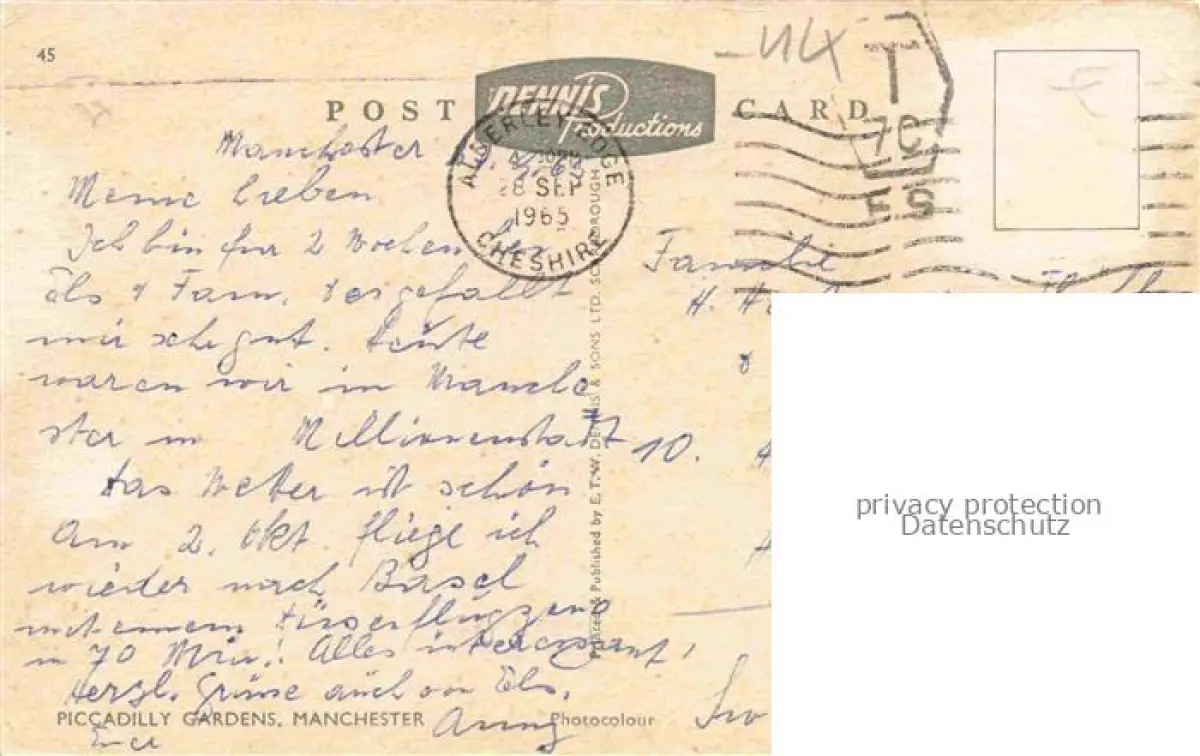 45
POST CARD
DENNIS
Productions
ALDERLEY EDGE
28 SEP
1965
CHESHIRE
T
7C
F S
Manchester
Meine Lieben
Ich bin für 2 Wochen bei
Els & Fam. & es gefällt
mir sehr gut. Heute
waren wir in Manche
ster in Millionenstadt
Das Wetter ist schön
Am 2. Okt. fliege ich
wieder nach Basel
mit einem Düsenflugzeug
in 70 Min.! Alles interessant!
Herzl. Grüsse auch von Els.
Eure Anny
Familie
H.
10.
Printed & Published by E. T. W. DENNIS & SONS LTD. SCARBOROUGH
PICCADILLY GARDENS, MANCHESTER
Photocolour
privacy protection
Datenschutz